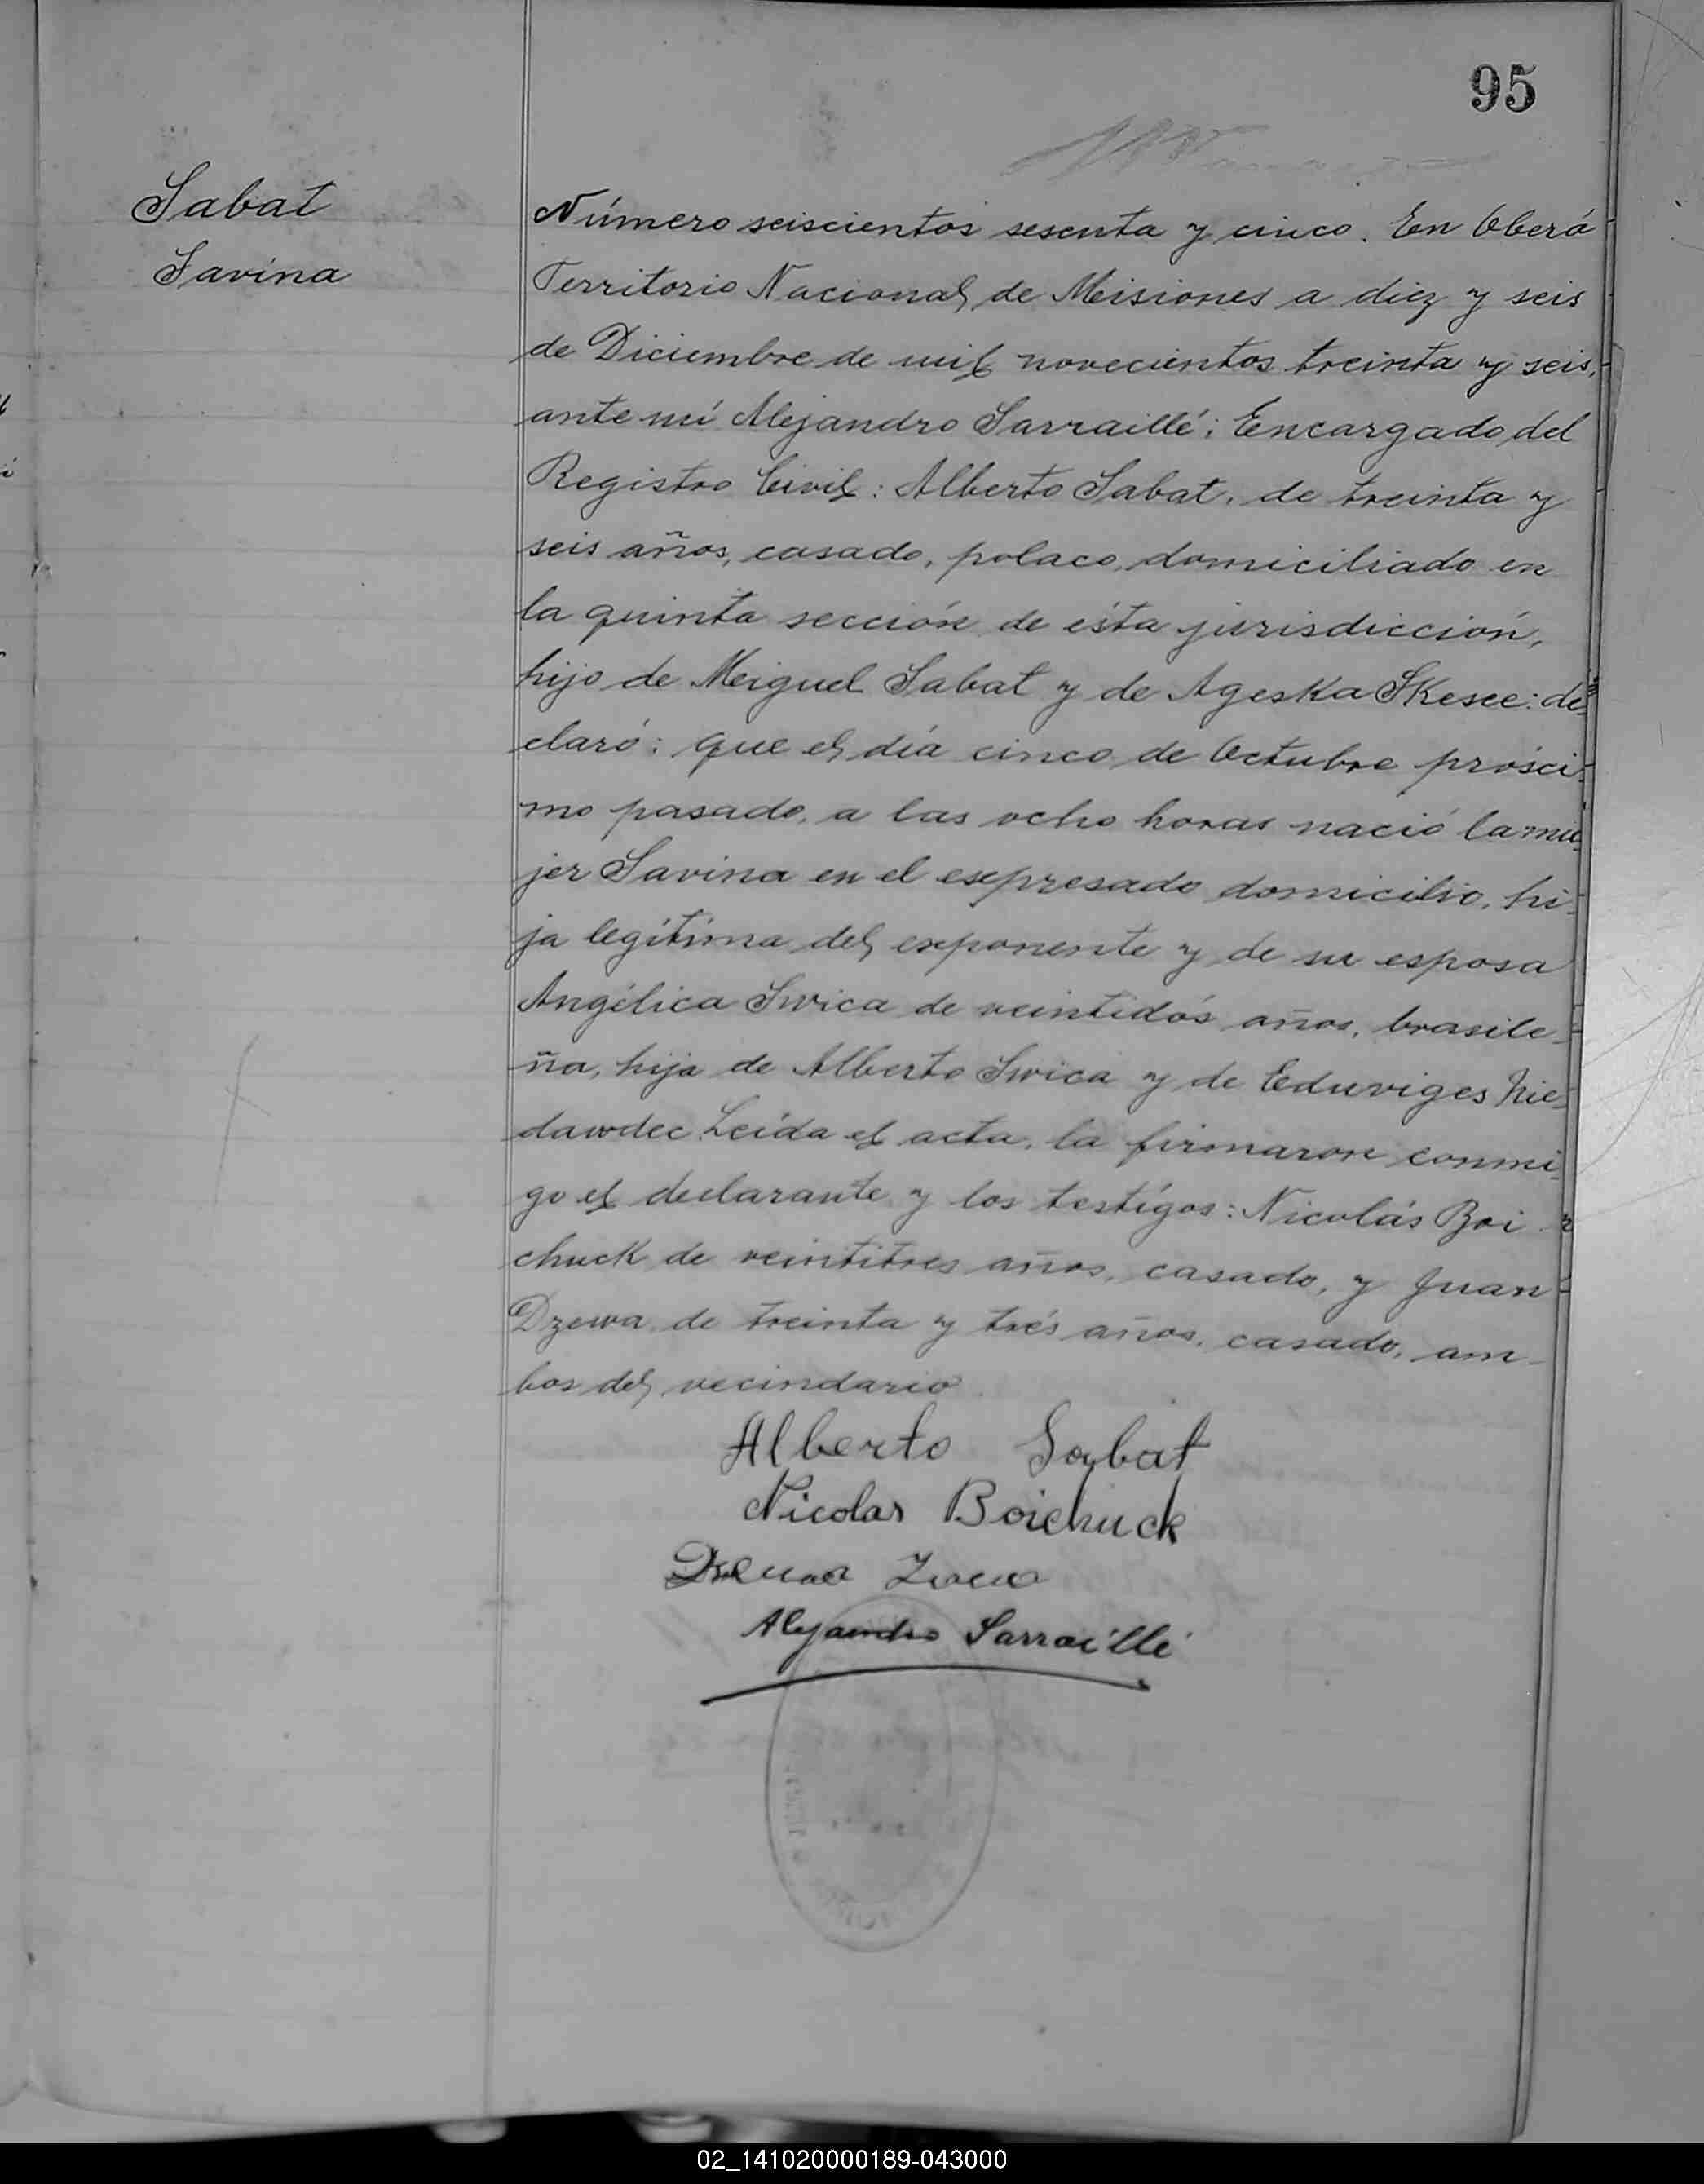 95
Sabat
Savina
Número seiscientos sesenta y cinco. En Oberá
Territorio Nacional de Misiones a diez y seis
de Diciembre de mil novecientos treinta y seis,
ante mí Alejandro Sarraillé; Encargado del
Registro Civil: Alberto Sabat, de treinta y
seis años, casado, polaco, domiciliado en
la quinta sección de ésta jurisdicción,
hijo de Miguel Sabat y de Ageska Skesee: de-
claró: que el día cinco de Octubre prósci-
mo pasado, a las ocho horas nació la mu-
jer Savina en el expresado domicilio, hi-
ja legítima del exponente y de su esposa
Angélica Swica de veintidós años, brasile-
ña, hija de Alberto Swica y de Eduviges Nie-
dawdec Leída el acta, la firmaron conmi-
go el declarante y los testígos: Nicolás Boi-
chuck de veintitres años, casado, y Juan
Dzewa de treinta y trés años, casado, am-
bos del vecindario.
Alberto Sabat
Nicolas Boichuck
Alejandro Sarraillé
02_141020000189-043000